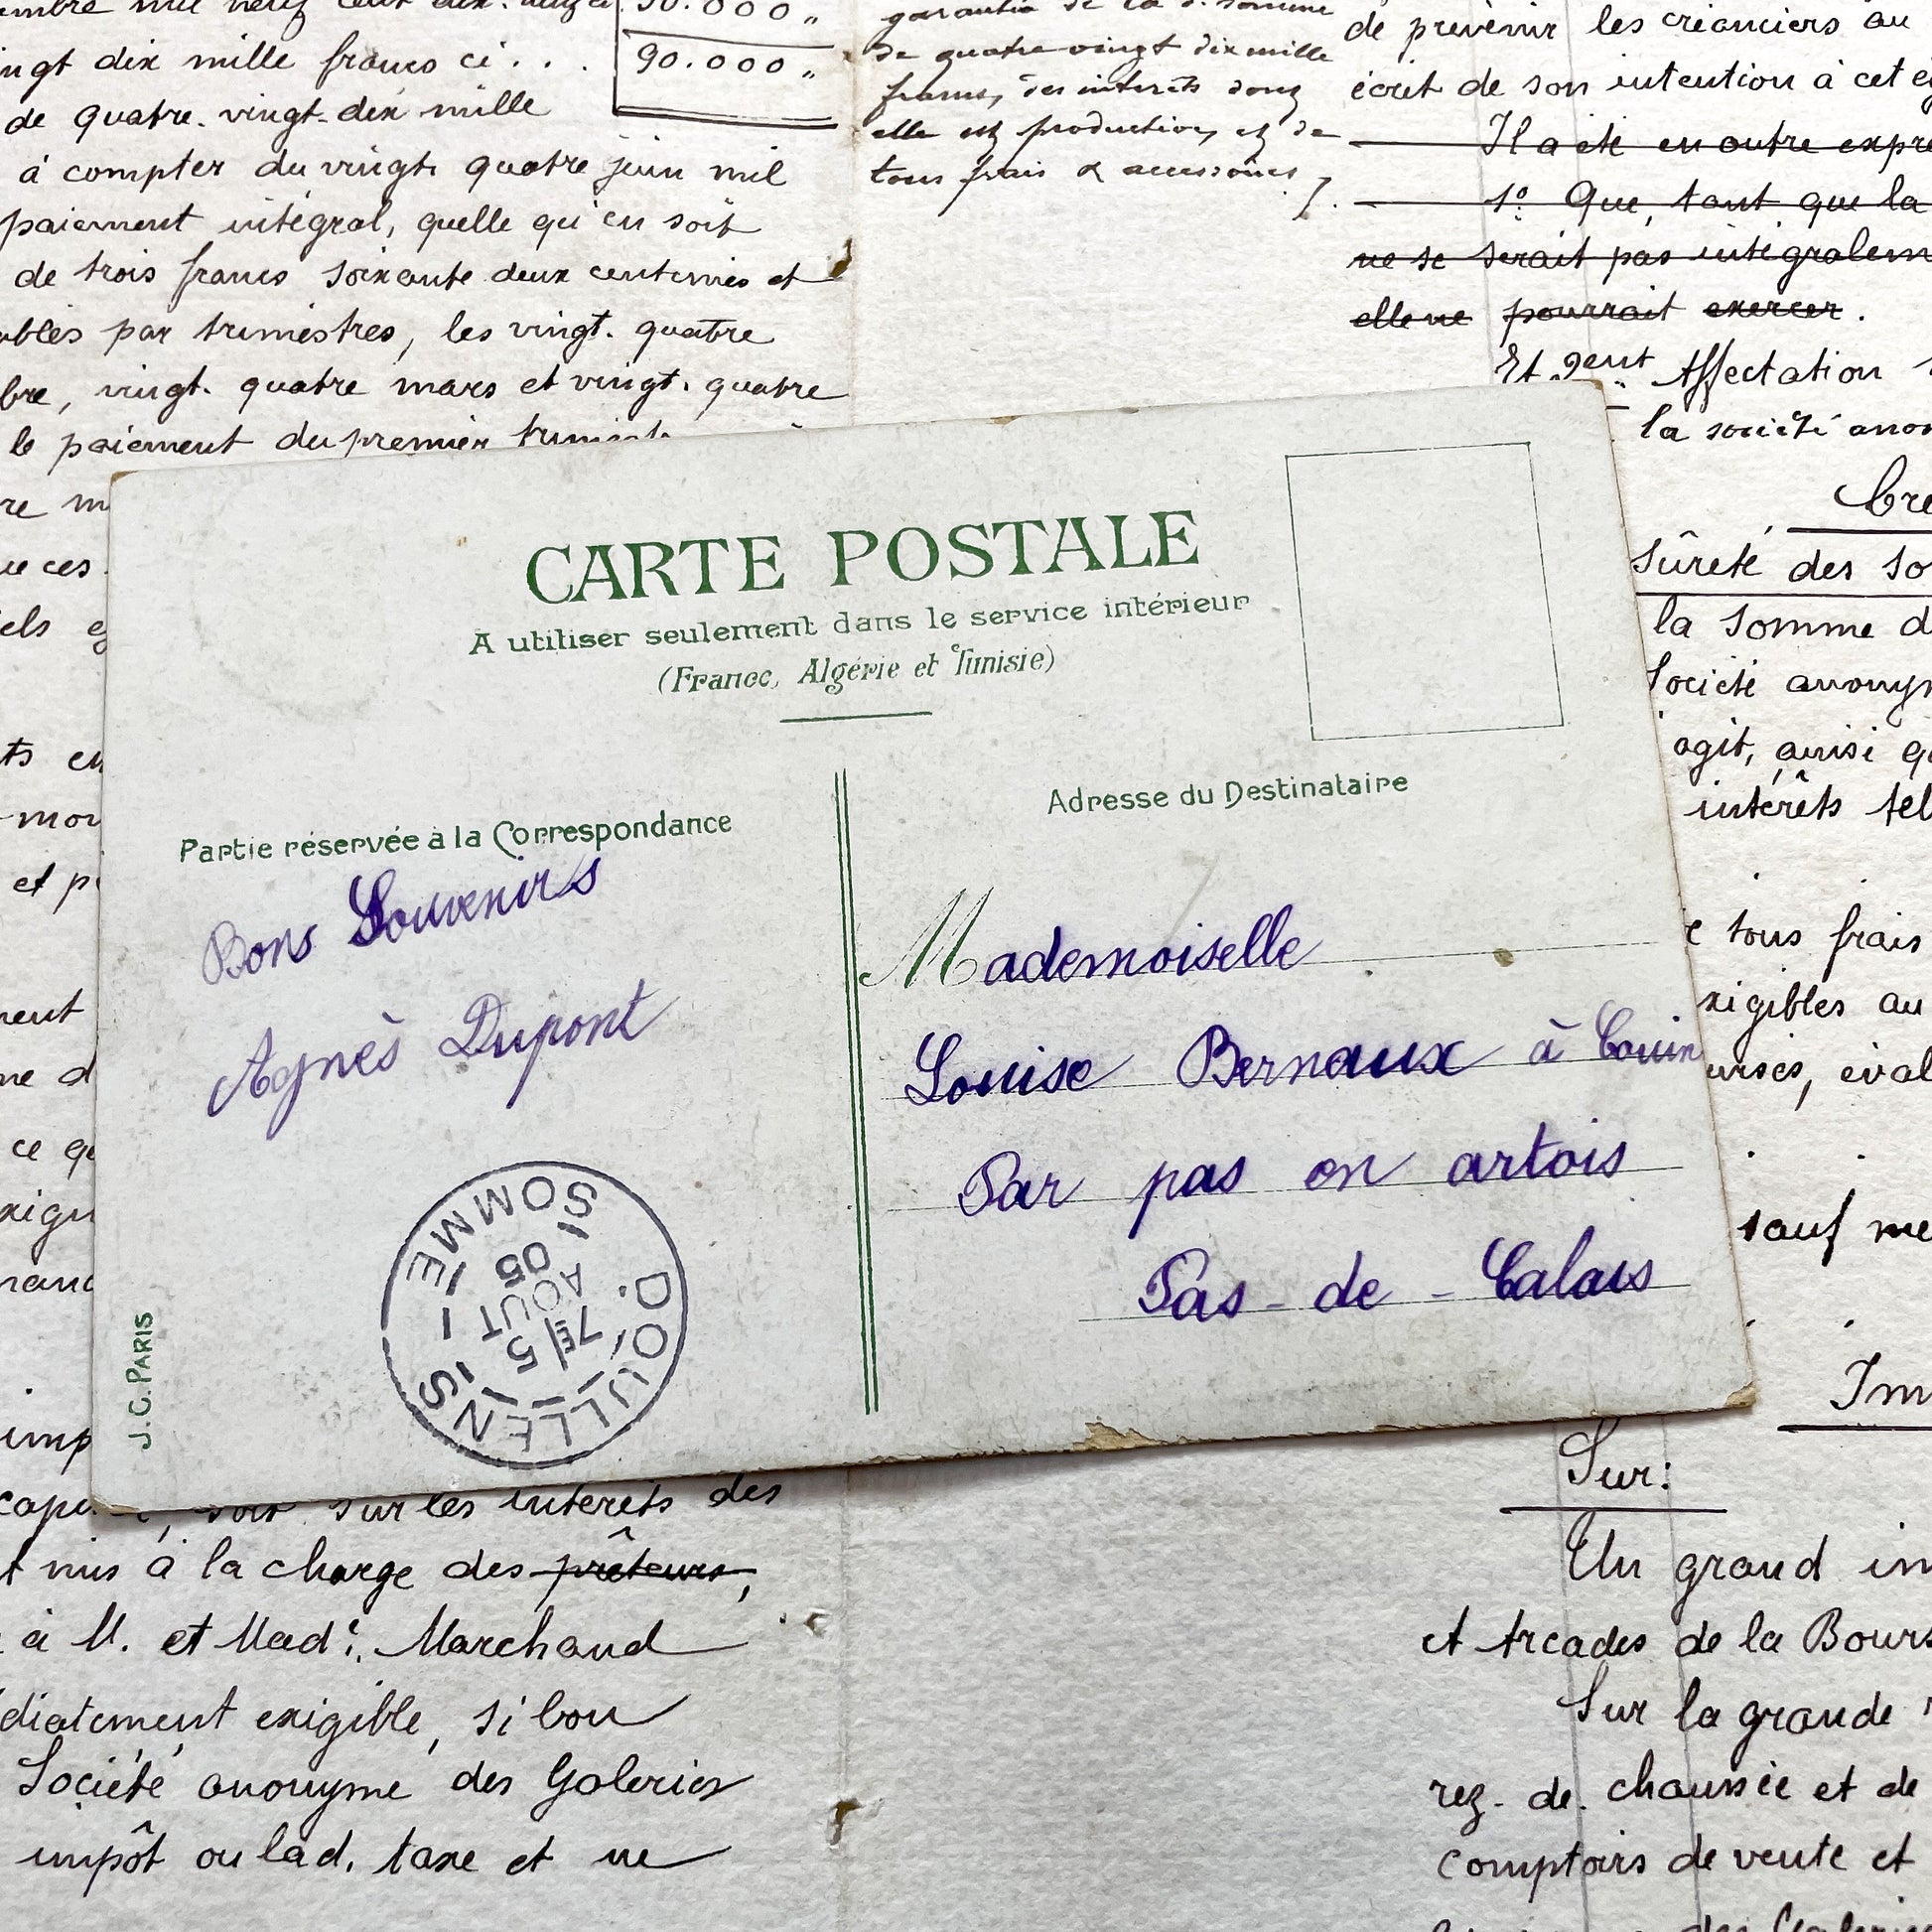 90.000 "
ingt dix mille francs ci . . .
90.000 "
de quatre-vingt-dix mille
à compter du vingt quatre juin mil
paiement intégral, quelle qu'en soit
de trois francs soixante deux centimes et
par trimestres, les vingt-quatre
bre, vingt-quatre mars et vingt-quatre
le paiement du premier
garantie de la d. somme
de quatre-vingt dix mille
francs, des intérêts dont
elle est production, et de
tous frais & accessoires
de prévenir les créanciers au
écrit de son intention à cet
Il a été en outre
1° Que, tant que la
ne se serait pas
elle ne pourrait exercer .
Et gent Affectation
la société
CARTE POSTALE
A utiliser seulement dans le service intérieur
(France, Algérie et Tunisie)
Partie réservée à la Correspondance
Bons Souvenirs
Agnès Dupont
DOULLENS
7E 5
AOUT
05
SOMME
J. C. PARIS
Adresse du Destinataire
Mademoiselle
Louise Bernaux à Couin
Par pas en artois
Pas-de-Calais
sûreté des
la somme
Société
agit, ainsi
intérêts
tous frais
exigibles au
sauf
soit sur les intérêts des
mis à la charge des prêteurs,
à M. et Made. Marchand
exigible, si bon
Société anonyme des Galeries
impôt ou lad. taxe et ne
Sur:
Un grand
et Arcades de la
Sur la grande
rez-de-chaussée et de
comptoirs de vente et